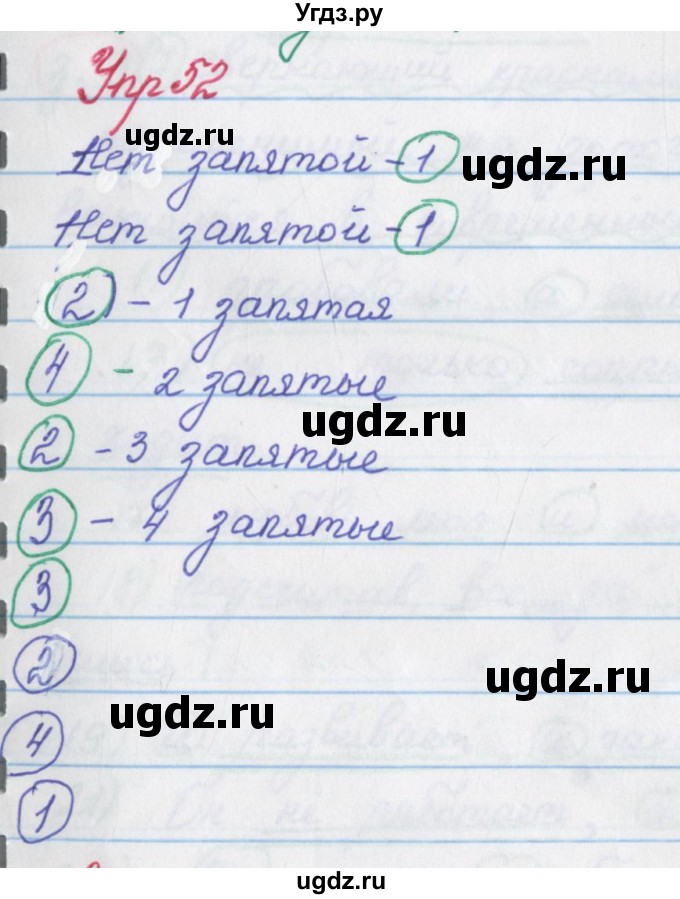 Угдз.ру
Упр 52
Нет запятой - 1
Нет запятой - 1
2) - 1 запятая
4 - 2 запятые
2 - 3 запятые
3 - 4 запятые
3
2
4
1
ugdz.ru
ugdz.ru
ugdz.ru
ugdz.ru
ugdz.ru
ugdz.ru